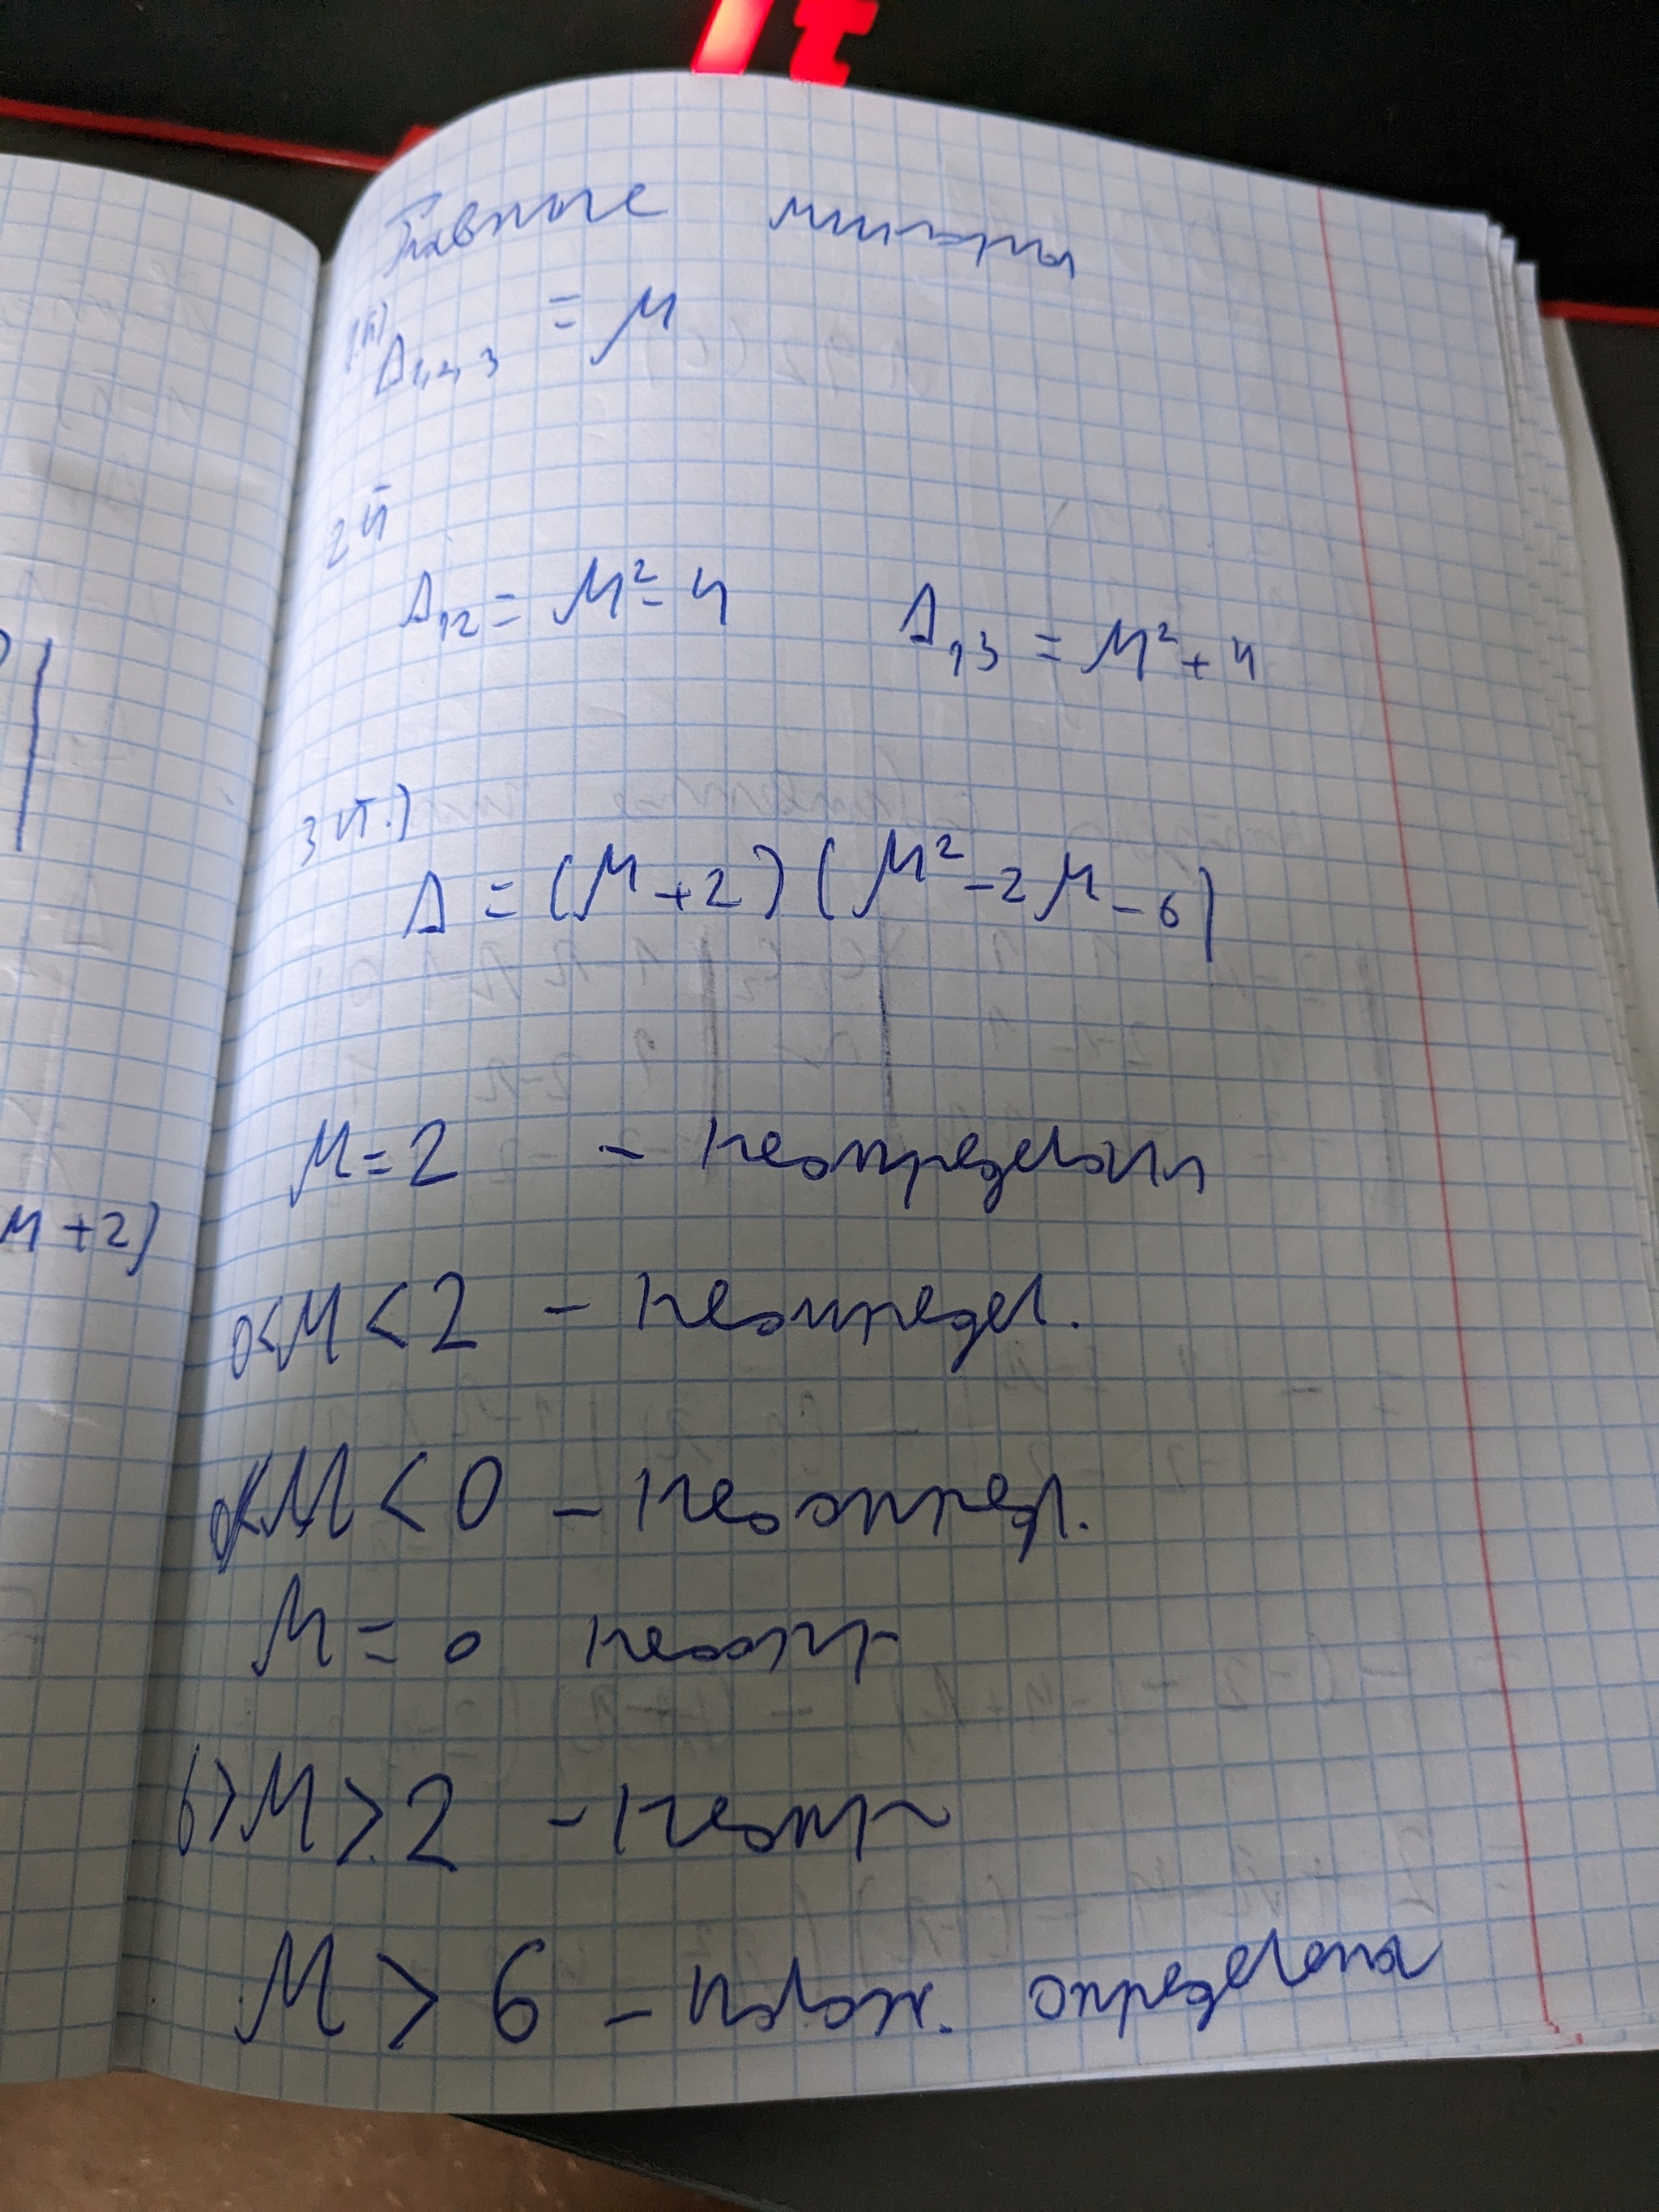 Tt
Главные миноры
1й) Δ₁,₂,₃ = M
2й
Δ₁₂ = M² - 4   Δ₁₃ = M² + 4
3й.)
Δ = (M + 2) (M² - 2M - 6)
M = 2 - неопределен
M + 2)
0 < M < 2 - неопредел.
M < 0 - неоопред.
M = 0 неоопр
6 > M > 2 - неопр
M > 6 - полож. определена